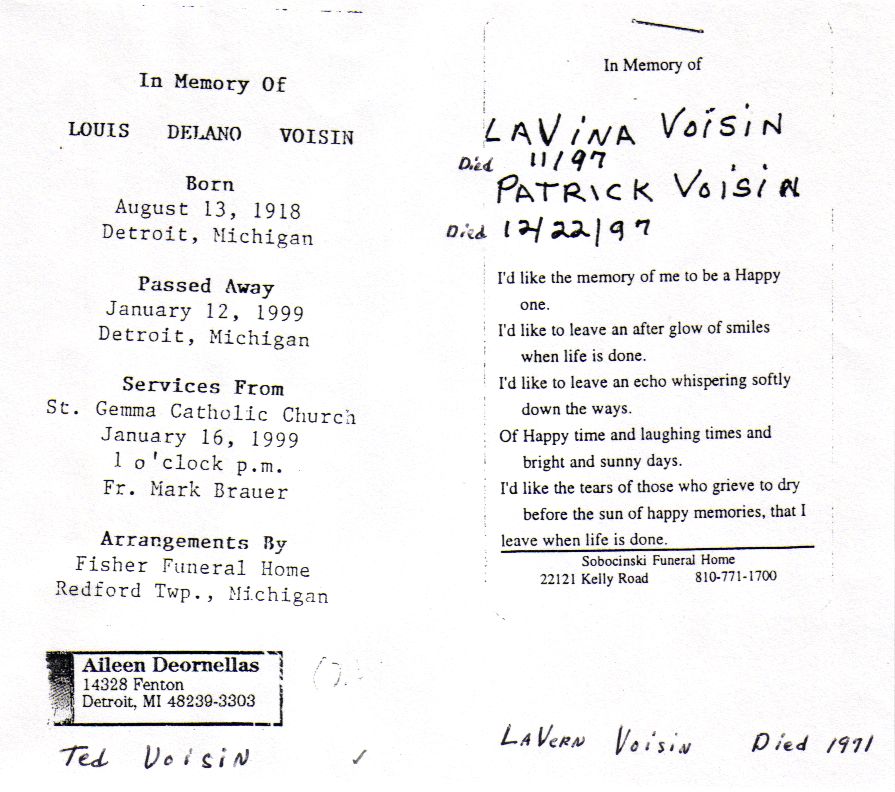 In Memory Of
LOUIS DELANO VOISIN
Born
August 13, 1918
Detroit, Michigan
Passed Away
January 12, 1999
Detroit, Michigan
Services From
St. Gemma Catholic Church
January 16, 1999
1 o'clock p.m.
Fr. Mark Brauer
Arrangements By
Fisher Funeral Home
Redford Twp., Michigan
Aileen Deornellas
14328 Fenton
Detroit, MI 48239-3303
Ted Voisin ✓
In Memory of
LAViNA VoisiN
Died 11/97
PATRICK VoisiN
Died 12/22/97
I'd like the memory of me to be a Happy
one.
I'd like to leave an after glow of smiles
when life is done.
I'd like to leave an echo whispering softly
down the ways.
Of Happy time and laughing times and
bright and sunny days.
I'd like the tears of those who grieve to dry
before the sun of happy memories, that I
leave when life is done.
Sobocinski Funeral Home
22121 Kelly Road 810-771-1700
LAVERN VoisiN Died 1971